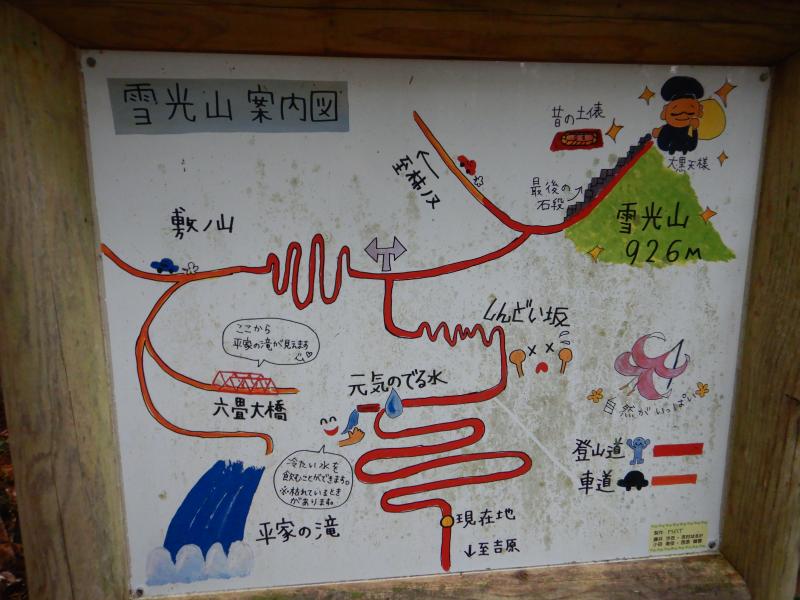 雪光山案内図
昔の土俵
大黒天様
至柿ノ又
最後の
石段
雪光山
926m
敷ノ山
ここから
平家の滝が見えます
六畳大橋
しんどい坂
元気のでる水
自然がいっぱい
冷たい水を
飲むことができます。
※枯れているとき
がありますね。
登山道
車道
平家の滝
現在地
↓至吉原
製作